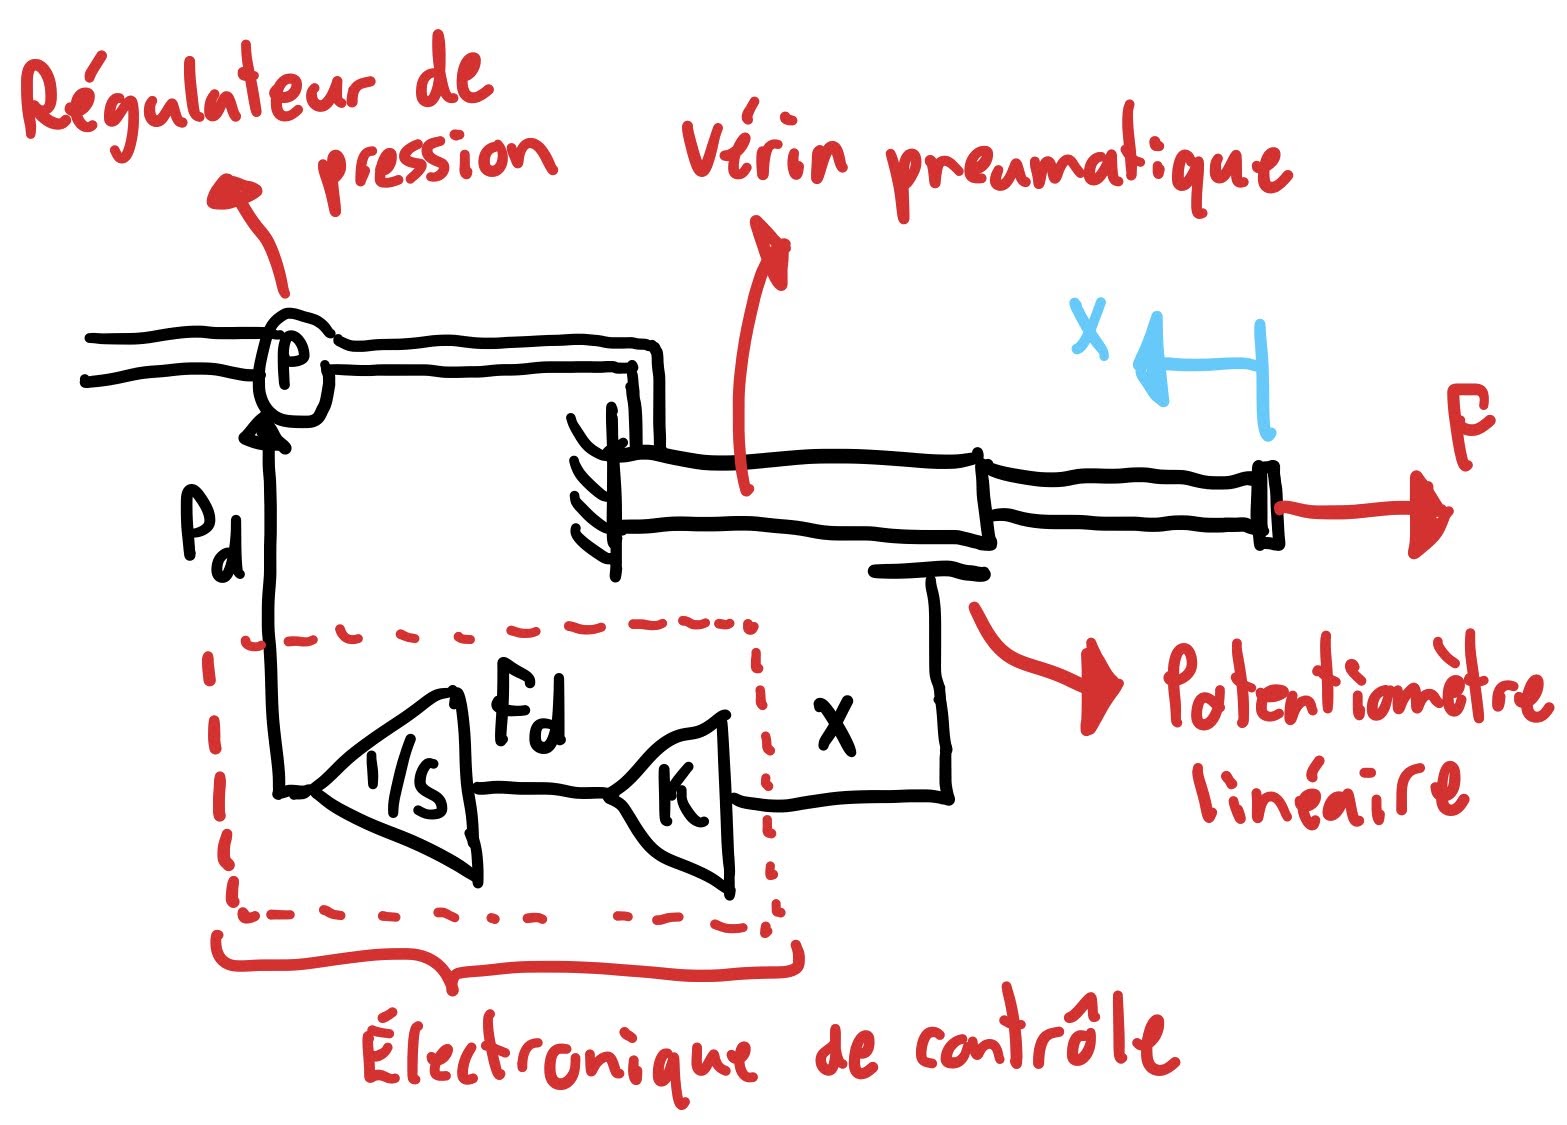 Régulateur de
pression
Vérin pneumatique
P
x
F
Pd
Fd
x
1/S
K
Potentiomètre
linéaire
Électronique de contrôle